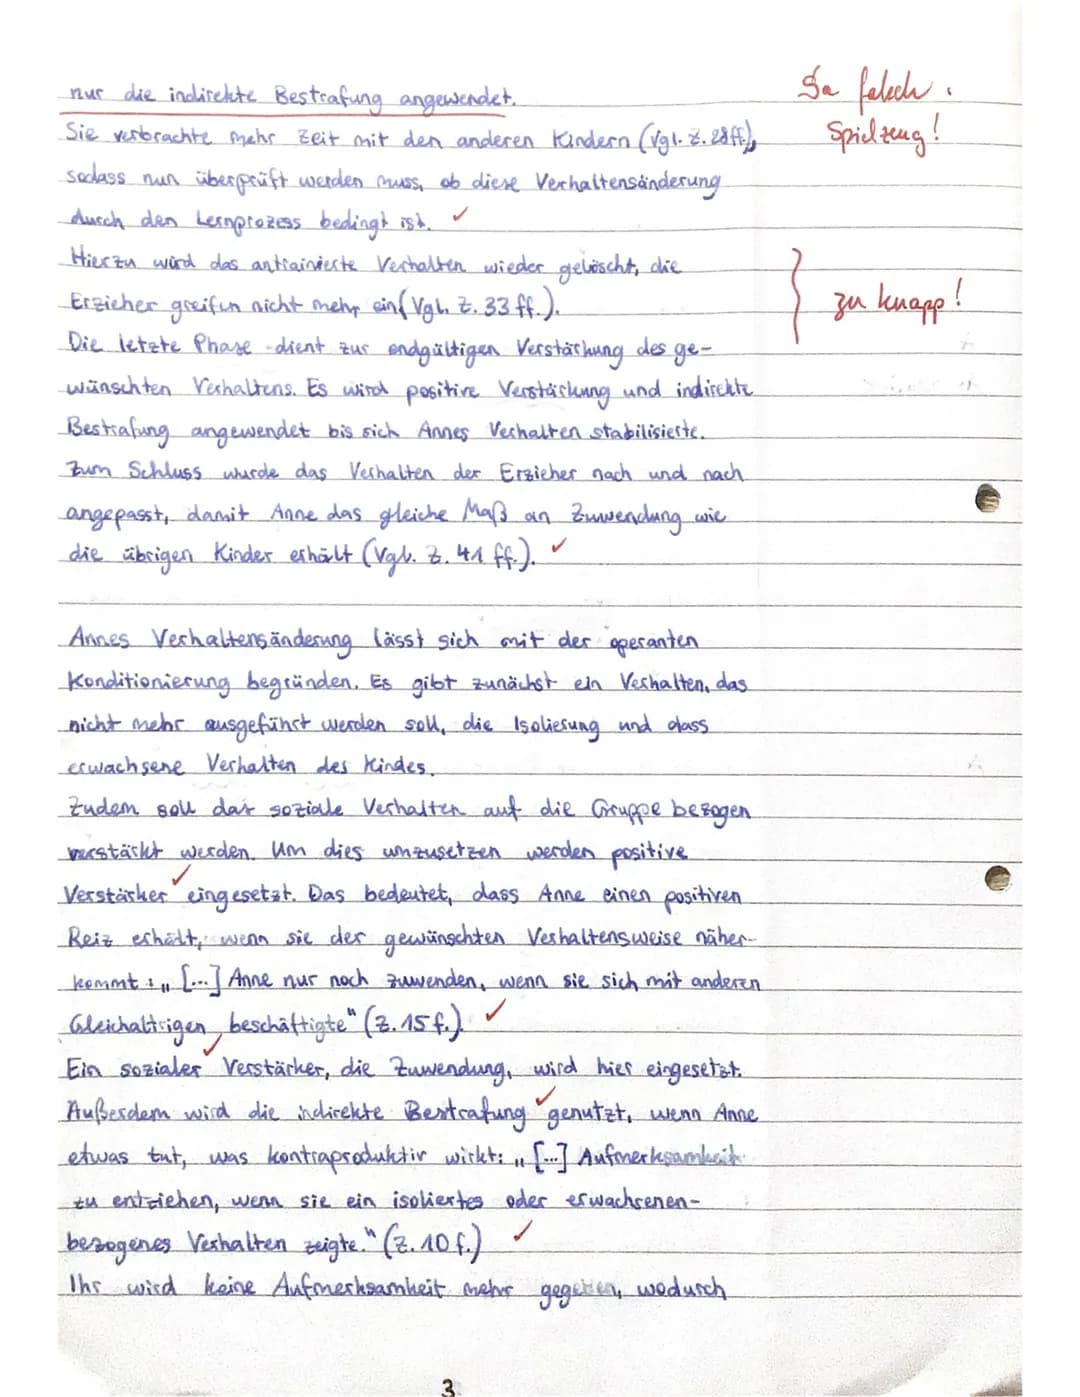 nur die indirekte Bestrafung angewendet.
falsch.
Spielzeug!
Sie verbrachte mehr Zeit mit den anderen Kindern (Vgl. Z. 28ff.),
sodass nun überprüft werden muss, ob diese Verhaltensänderung
durch den Lernprozess bedingt ist.
Hierzu wird das antrainierte Verhalten wieder gelöscht, die
Erzieher greifen nicht mehr ein (Vgl. Z. 33 ff.).
zu knapp!
Die letzte Phase dient zur endgültigen Verstärkung des ge-
wünschten Verhaltens. Es wird positive Verstärkung und indirekte
Bestrafung angewendet bis sich Annes Verhalten stabilisierte.
Zum Schluss wurde das Verhalten der Erzieher nach und nach
angepasst, damit Anne das gleiche Maß an Zuwendung wie
die übrigen Kinder erhält (Vgl. Z. 41 ff.).
Annes Verhaltensänderung lässt sich mit der operanten
Konditionierung begründen. Es gibt zunächst ein Verhalten, das
nicht mehr ausgeführt werden soll, die Isolierung und dass
erwachsene Verhalten des Kindes.
Zudem soll das soziale Verhalten auf die Gruppe bezogen
verstärkt werden. Um dies umzusetzen werden positive
Verstärker eingesetzt. Das bedeutet, dass Anne einen positiven
Reiz erhält, wenn sie der gewünschten Verhaltensweise näher-
kommt: „[...] Anne nur noch zuwenden, wenn sie sich mit anderen
Gleichaltrigen beschäftigte" (Z. 15 f.).
Ein sozialer Verstärker, die Zuwendung, wird hier eingesetzt.
Außerdem wird die indirekte Bestrafung genutzt, wenn Anne
etwas tut, was kontraproduktiv wirkt: „[...] Aufmerksamkeit
zu entziehen, wenn sie ein isoliertes oder erwachsenen-
bezogenes Verhalten zeigte." (Z. 10 f.)
Ihr wird keine Aufmerksamkeit mehr gegeben, wodurch
3